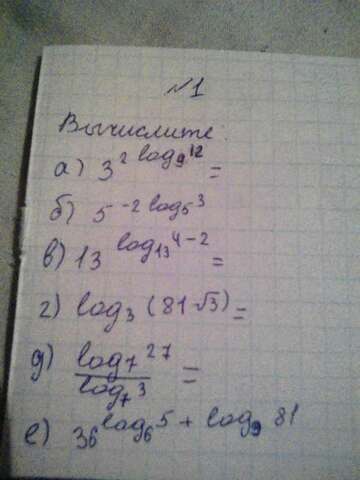 №1
Вычислите:
а) 3^2 log_9 12 =
б) 5^-2 log_5 3
в) 13^log_13 4-2 =
г) log_3 (81√3) =
д) log_7 27 / log_7 3 =
е) 36^log_6 5 + log_9 81